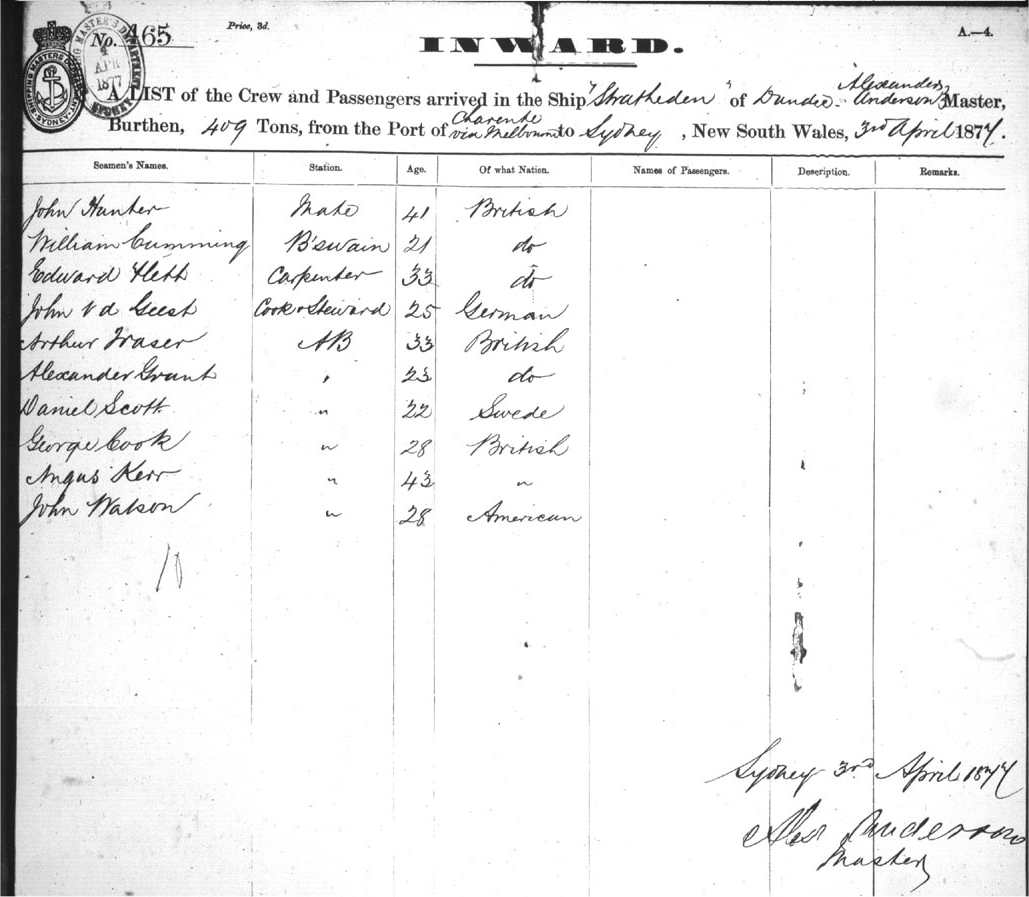 Price, 3d.
A.—4.
No. 465
INWARD.
SHIPPING MASTERS OFFICE SYDNEY
SHIPPING MASTER'S DEPARTMENT 4 APR 1877 SYDNEY
A LIST of the Crew and Passengers arrived in the Ship "Stratheden" of Dundee. Alexander Anderson Master,
Burthen, 409 Tons, from the Port of Charente via Melbourne to Sydney, New South Wales, 3rd April 1877.
Seamen's Names. Station. Age. Of what Nation. Names of Passengers. Description. Remarks.
John Hunter Mate 41 British
William Cumming B'swain 21 do
Edward Flett Carpenter 33 do
John V d Geest Cook & Steward 25 German
Arthur Fraser AB 33 British
Alexander Grant " 23 do
Daniel Scott " 22 Swede
George Cook " 28 British
Angus Kerr " 43 "
John Watson " 28 American
10
Sydney 3rd April 1877
Alexr Anderson
Master